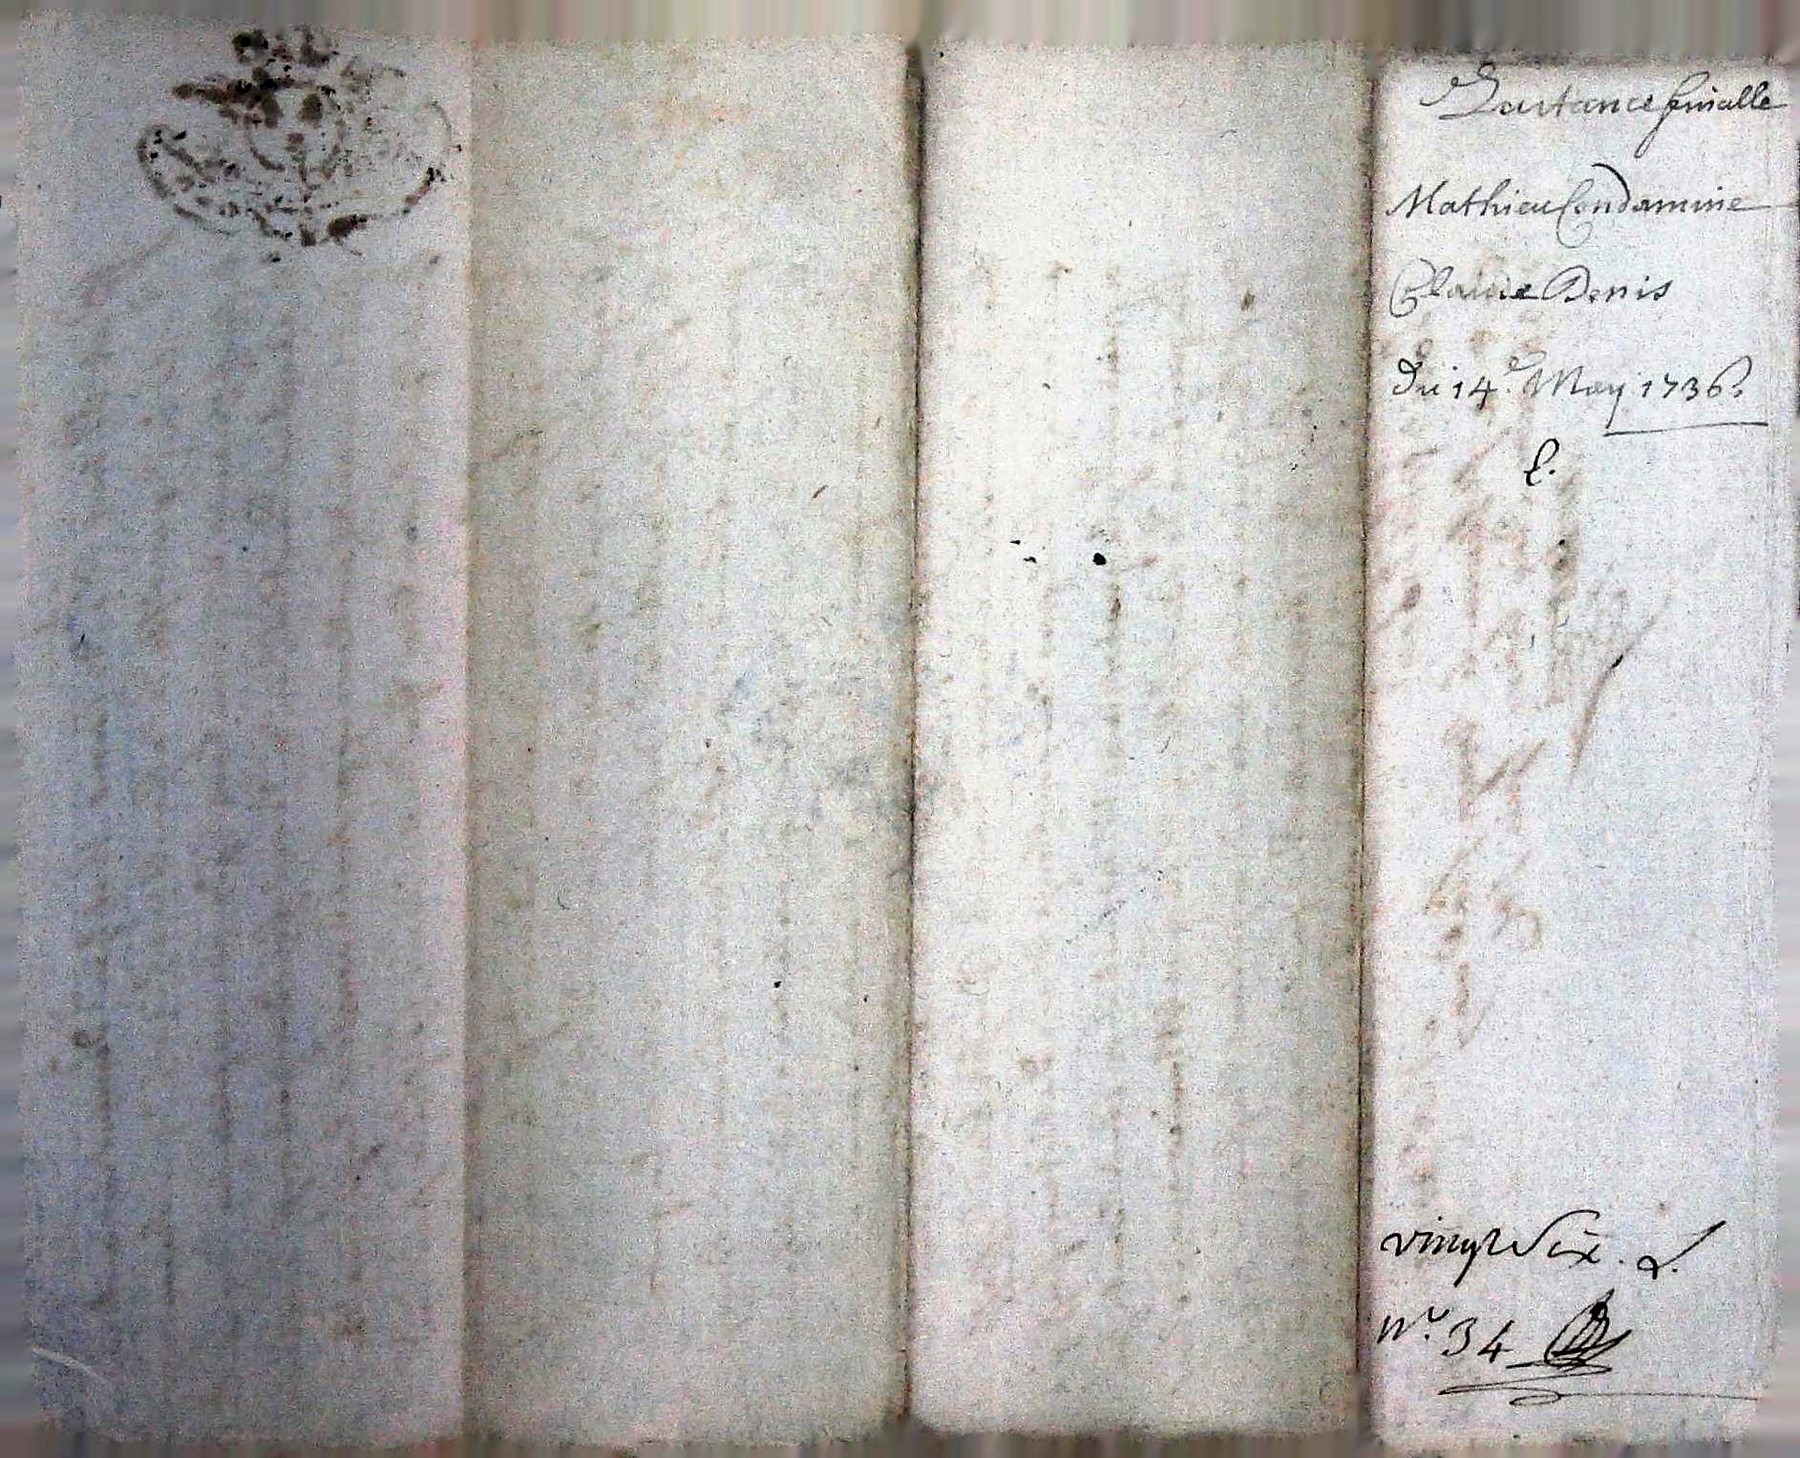 Quitance finalle
Mathieu Condamine
Claude Denis
du 14.e May 1736.
C.
vingt Six. L.
N.o 34